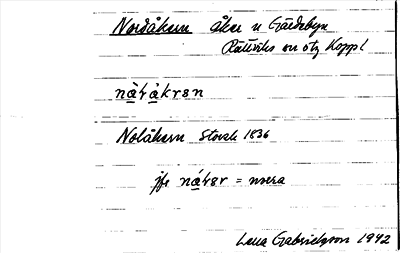 Nordåkern åker n Gärdebyn
Rättviks sn o tg Koppl
Nolåkern Storsk 1836
jfr = norra
Lena Gabrielsson 1942